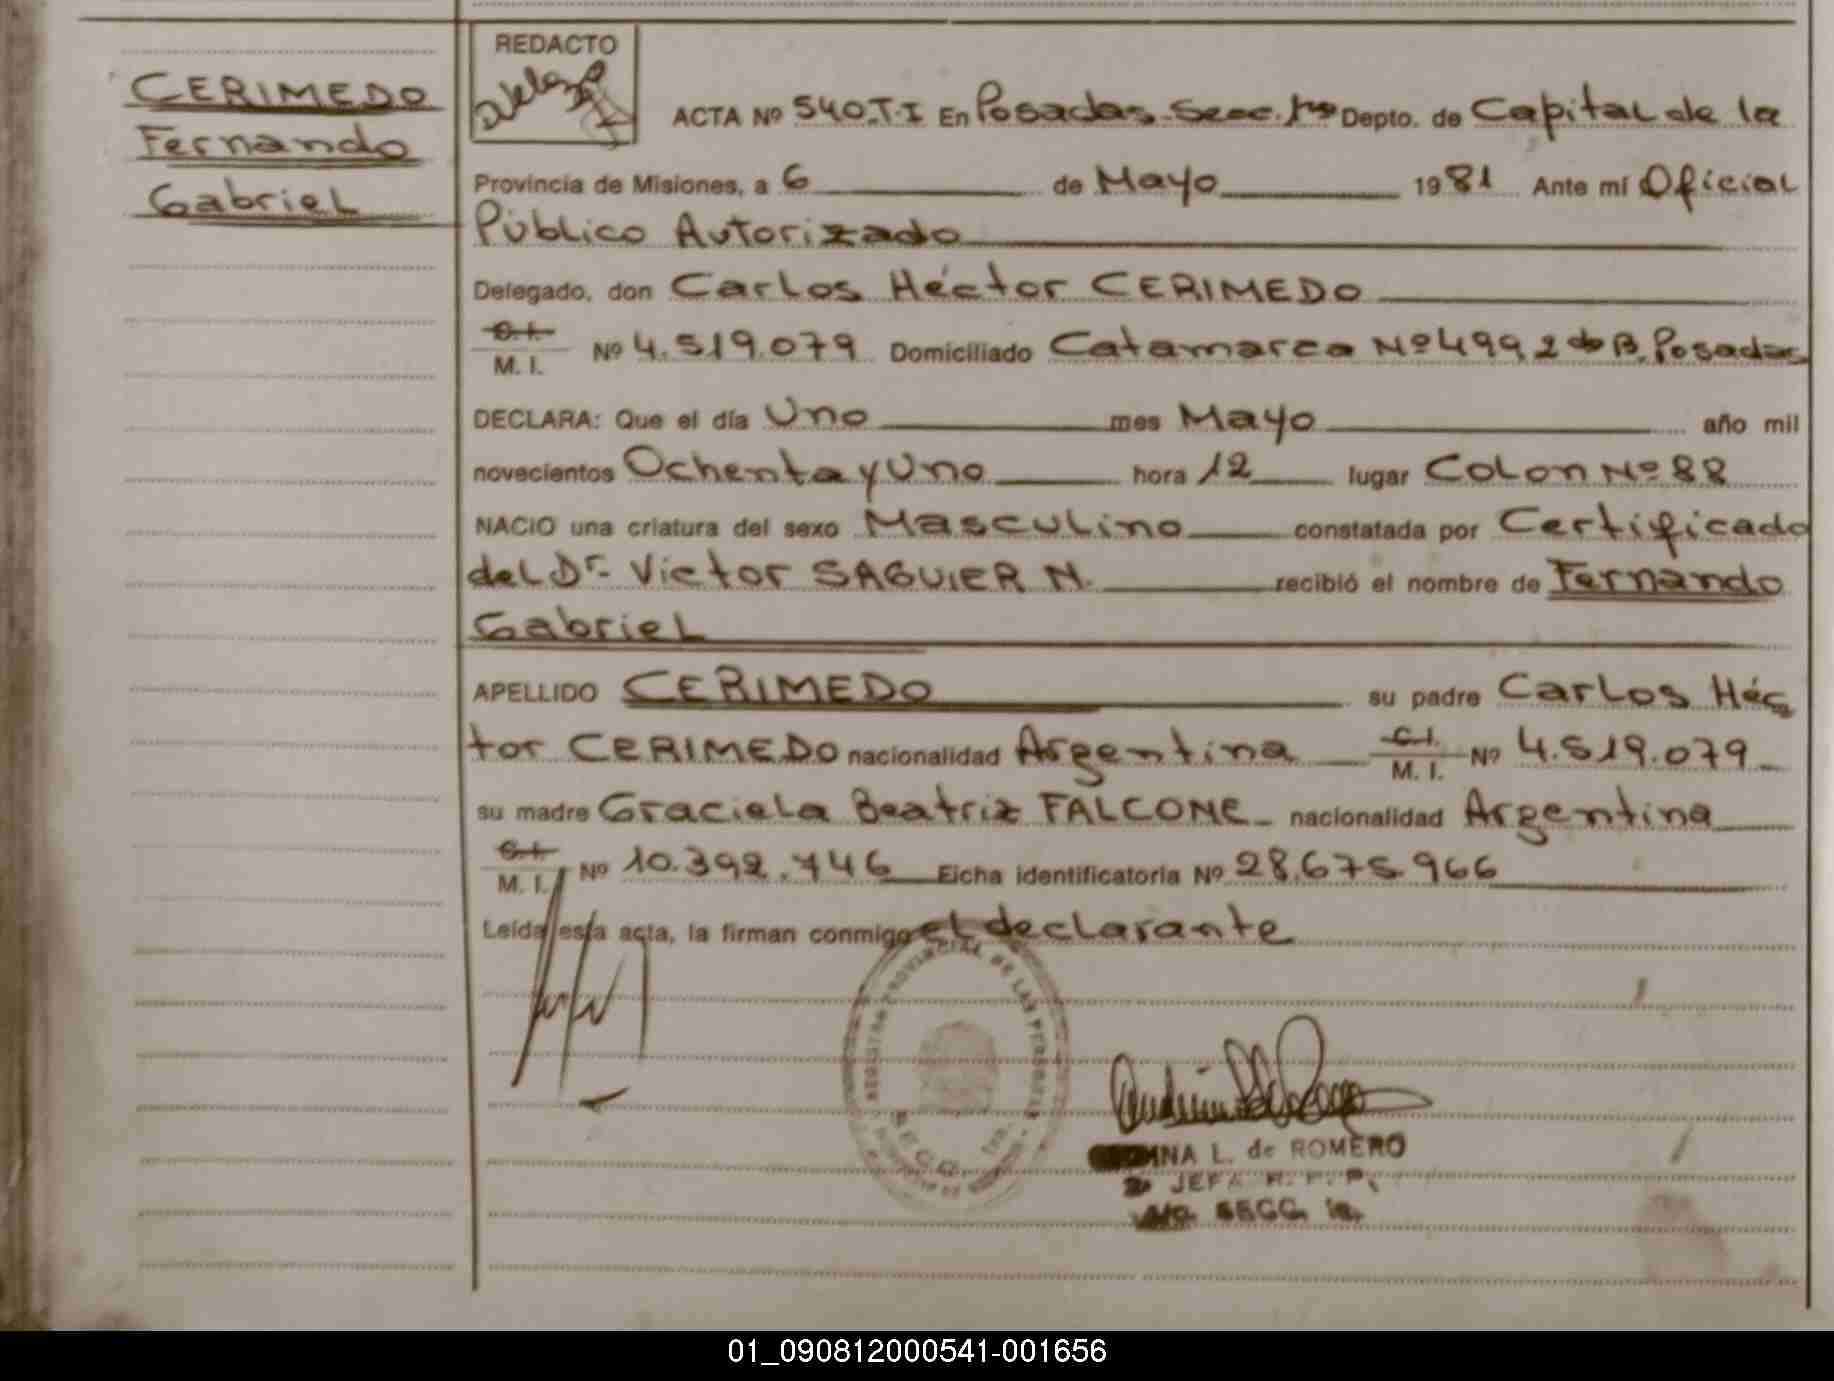 CERIMEDO
Fernando
Gabriel
REDACTO
ACTA Nº 540.T.I En Posadas. Secc. 1ra Depto. de Capital de la
Provincia de Misiones, a 6 de Mayo 1981 Ante mí Oficial
Público Autorizado
Delegado, don Carlos Héctor CERIMEDO
C.I.
M. I. Nº 4.519.079 Domiciliado Catamarca Nº 499, 2do B. Posadas
DECLARA: Que el día Uno mes Mayo año mil
novecientos Ochenta y Uno hora 12 lugar Colon Nº 88
NACIO una criatura del sexo Masculino constatada por Certificado
del Dr. Victor SAGUIER N. recibió el nombre de Fernando
Gabriel
APELLIDO CERIMEDO su padre Carlos Héc
tor CERIMEDO nacionalidad Argentina C.I. M. I. Nº 4.519.079
su madre Graciela Beatriz FALCONE nacionalidad Argentina
C.I.
M. I. Nº 10.392.746 Ficha identificatoria Nº 28.675.966
Leída esta acta, la firman conmigo el declarante
REGISTRO PROVINCIAL DE LAS PERSONAS
L. de ROMERO
JEFA R. P. P.
SECC. 1a.
01_090812000541-001656